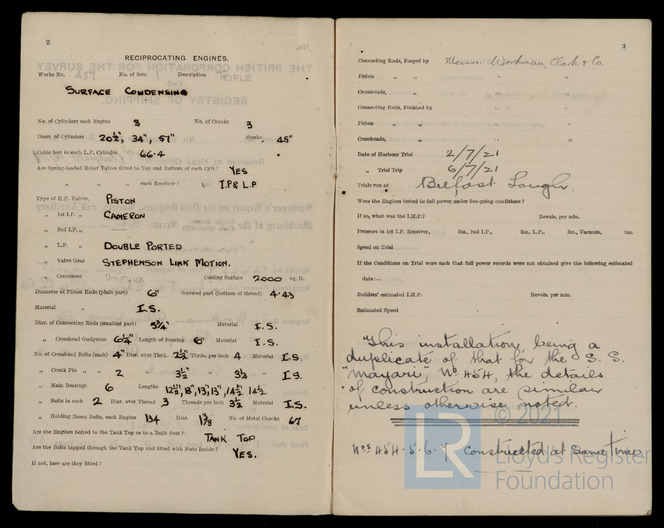 2
RECIPROCATING ENGINES.
Works No. 457 No. of Sets 1 Description TRIPLE
SURFACE CONDENSING
No. of Cylinders each Engine 3 No. of Cranks 3
Diars. of Cylinders 20½", 34", 57" Stroke 45"
Cubic feet in each L.P. Cylinder 66.4
Are Spring-loaded Relief Valves fitted to Top and Bottom of each Cylr.? YES
" " " each Receiver? I.P & L.P
Type of H.P. Valves, PISTON
" 1st I.P. " CAMERON
" 2nd I.P. "
" L.P. " DOUBLE PORTED
" Valve Gear STEPHENSON LINK MOTION.
" Condenser Cooling Surface 2000 sq. ft.
Diameter of Piston Rods (plain part) 6" Screwed part (bottom of thread) 4.43
Material I.S.
Diar. of Connecting Rods (smallest part) 5¾" Material I.S.
" Crosshead Gudgeons 6¼" Length of Bearing 8" Material I.S.
No. of Crosshead Bolts (each) 4" Diar. over Thrd. 2½" Thrds. per inch 4 Material I.S.
" Crank Pin " " 2 " 3½" " 3½ " I.S.
" Main Bearings 6 Lengths 12½", 13", 13", 13", 14½", 14½
" Bolts in each 2 Diar. over Thread 3 Threads per inch 3½ Material I.S.
" Holding Down Bolts, each Engine 134 Diar. 1⅜ No. of Metal Chocks 67
Are the Engines bolted to the Tank Top or to a Built Seat? TANK TOP
Are the Bolts tapped through the Tank Top and fitted with Nuts Inside? YES.
If not, how are they fitted?
3
Connecting Rods, Forged by Messrs. Workman, Clark & Co.
Piston " " "
Crossheads, " " "
Connecting Rods, Finished by "
Piston " " "
Crossheads, " " "
Date of Harbour Trial 2/7/21
" Trial Trip 6/7/21
Trials run at Belfast Lough.
Were the Engines tested to full power under Sea-going conditions?
If so, what was the I.H.P.? Revols. per min.
Pressure in 1st I.P. Receiver, lbs., 2nd I.P., lbs., L.P., lbs., Vacuum, ins.
Speed on Trial
If the Conditions on Trial were such that full power records were not obtained give the following estimated
data:—
Builders' estimated I.H.P. Revols. per min.
Estimated Speed
This installation, being a
duplicate of that for the S.S.
"Mayari", No 454, the details
of construction are similar
unless otherwise noted.
Nos 454.5.6.7 Constructed at same time.
© 2021
LR
Lloyd's Register
Foundation